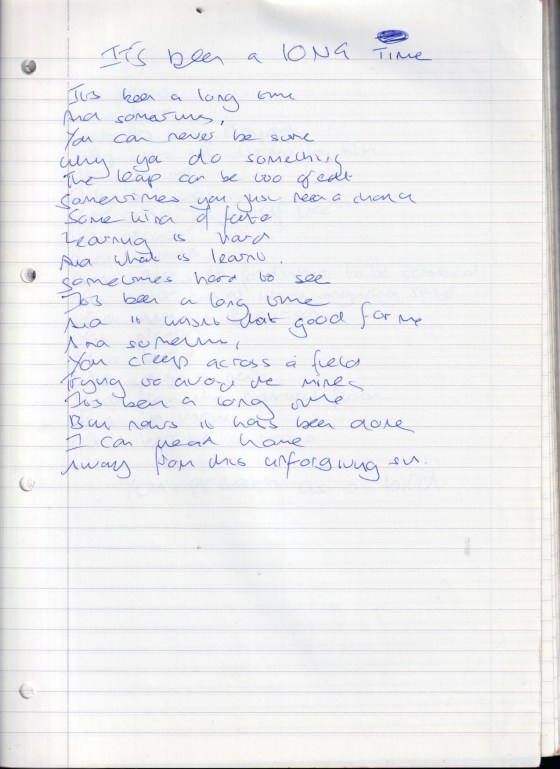 IT'S been a LONG TIME
It's been a long time
And sometimes,
You can never be sure
why ya do something
The leap can be too great
Sometimes you just need a chance
Some kind of fate
Learning is hard
And what is learnt.
Sometimes hard to see
It's been a long time
And it wasn't that good for me
And sometimes,
You creep across a field
Trying to avoid the mines
It's been a long time
But now it has been done
I can head home
Away from this unforgiving sun.